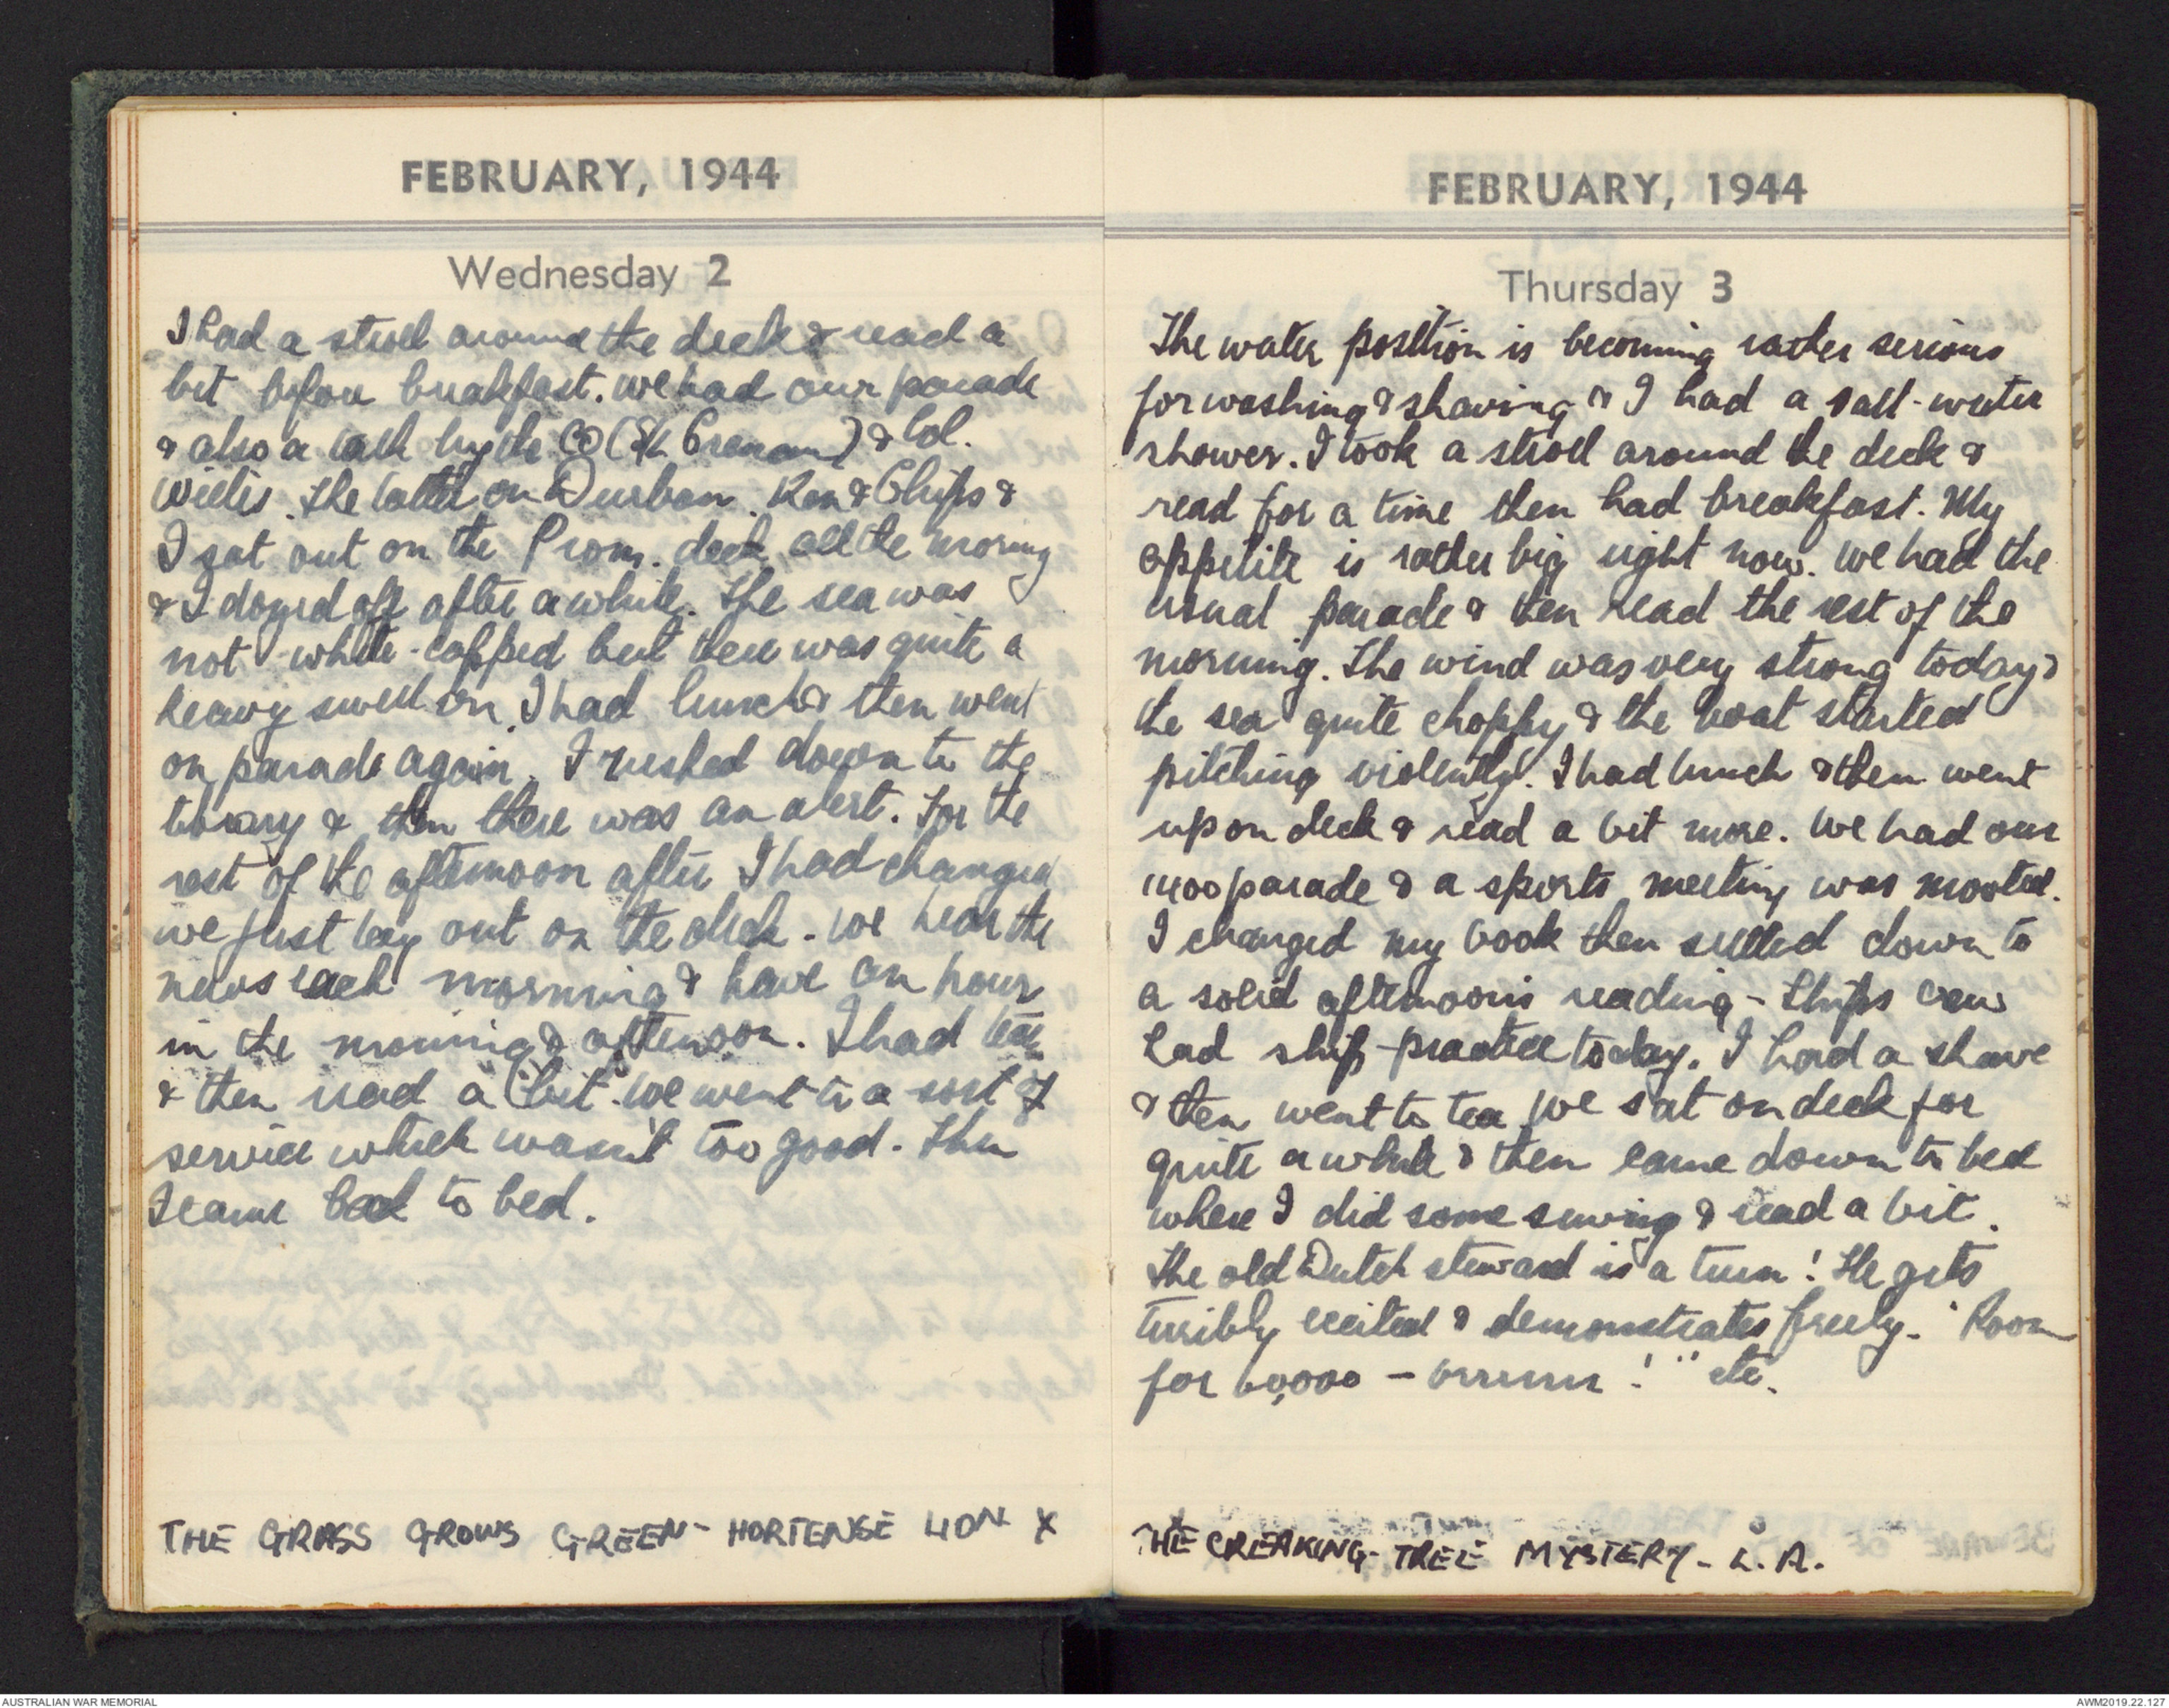 FEBRUARY, 1944
Wednesday 2
I had a stroll around the deck & read a
bit before breakfast. We had our parade
& also a talk by the CO (S/L ) & Col.
Willis. The latter on Durban. Ken & Chips &
I sat out on the Prom. deck all the morning
& I dozed off after a while. The sea was
not white-capped but there was quite a
heavy swell on. I had lunch & then went
on parade again. I rushed down to the
library & then there was an alert. For the
rest of the afternoon after I had changed
we just lay out on the deck. We hear the
news each morning & have an hour
in the morning & afternoon. I had tea
& then read a bit. We went to a sort of
service which wasn't too good. Then
I came back to bed.
THE GRASS GROWS GREEN - HORTENSE LION X
FEBRUARY, 1944
Thursday 3
The water position is becoming rather serious
for washing & shaving & I had a salt-water
shower. I took a stroll around the deck &
read for a time then had breakfast. My
appetite is rather big right now. We had the
usual parade & then read the rest of the
morning. The wind was very strong today &
the sea quite choppy & the boat started
pitching violently. I had lunch & then went
up on deck & read a bit more. We had our
1400 parade & a sports meeting was mooted.
I changed my book then settled down to
a solid afternoon's reading - Ships crew
had ship-practice today. I had a shave
& then went to tea. We sat on deck for
quite a while & then came down to bed
where I did some sewing & read a bit.
The old Dutch steward is a turn! He gets
terribly excited & demonstrates freely. "Room
for 60,000 - brrrrr!" etc.
THE CREAKING-TREE MYSTERY - L. A.
AUSTRALIAN WAR MEMORIAL
AWM2019.22.127